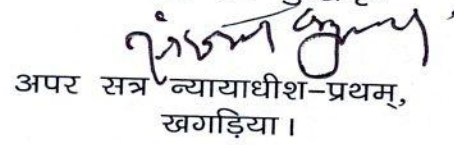 अपर सत्र न्यायाधीश-प्रथम्,
खगड़िया।